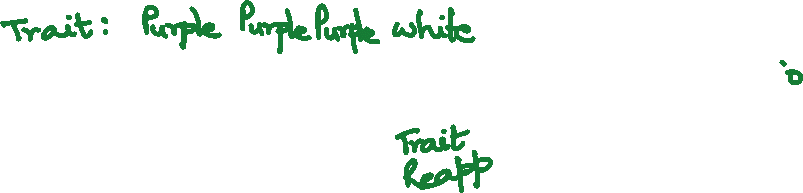 Trait: Purple Purple Purple white
Trait
Reapp